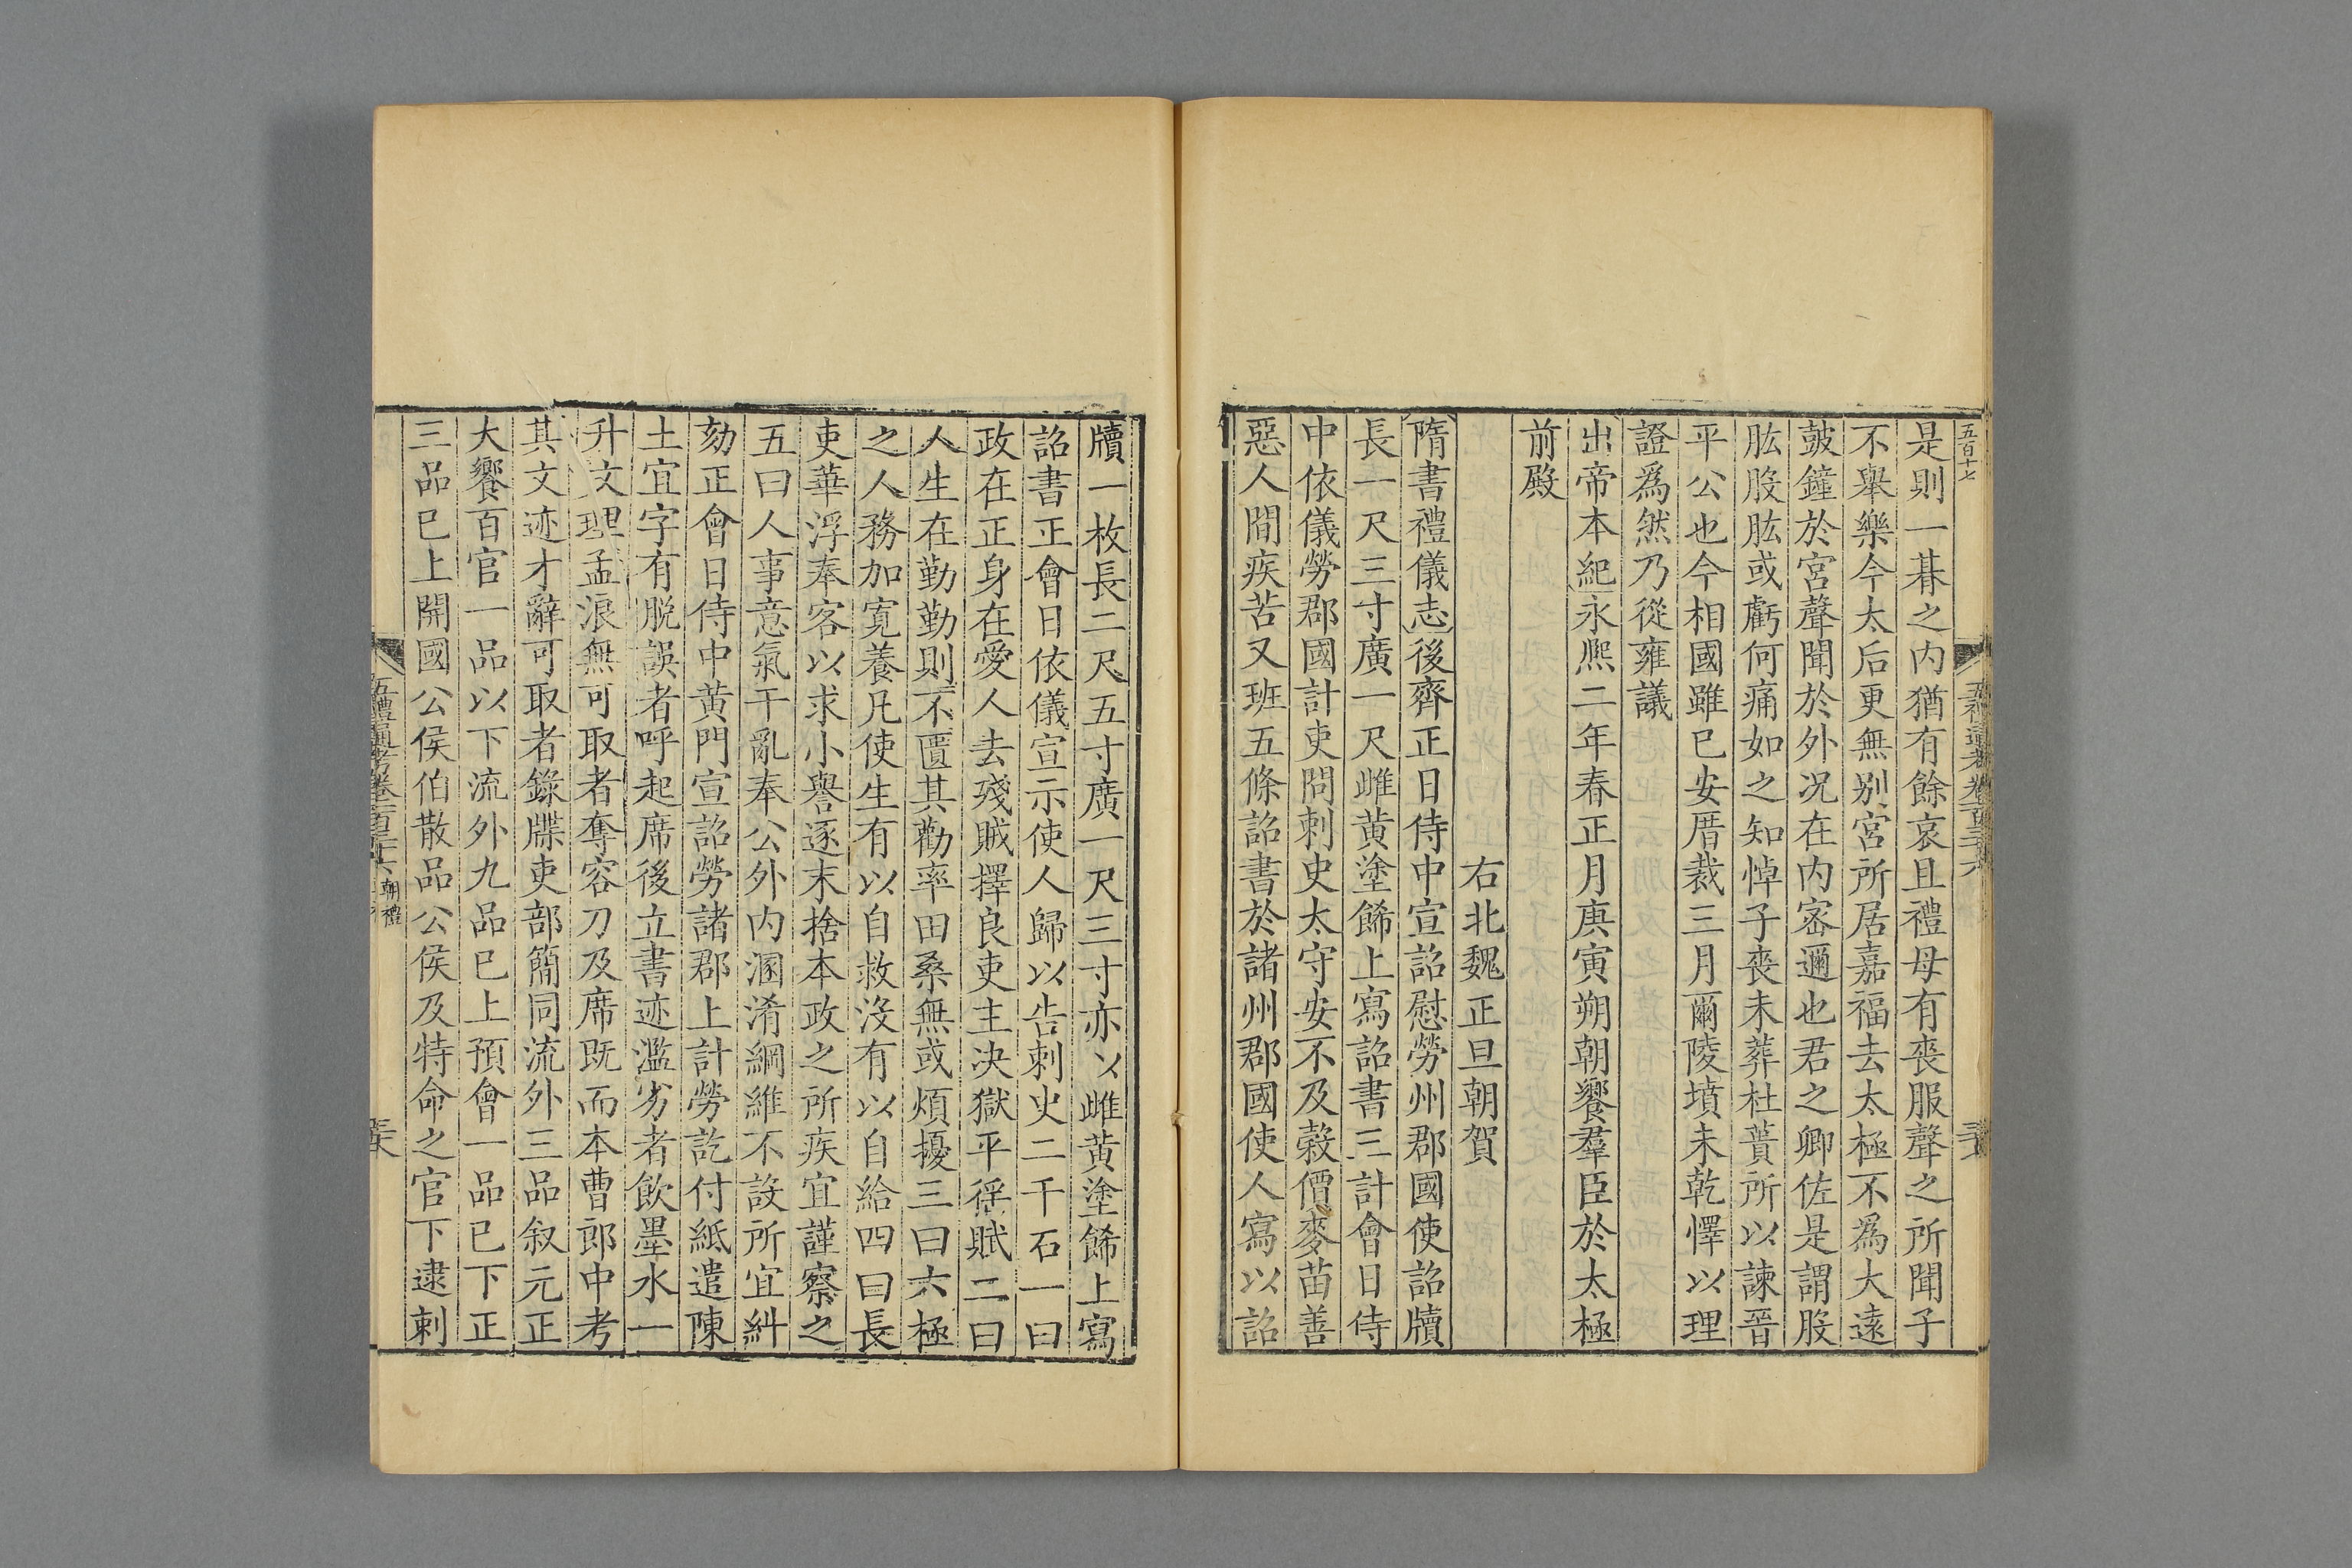 五百十七
是則一朞之内猶有餘哀且禮母有喪服聲之所聞子
不舉樂今太后更無别宫所居嘉福去太極不為大遠
皷鐘於宫聲聞於外况在内宻邇也君之卿佐是謂股
肱股肱或虧何痛如之知悼子喪未葬杜蕢所以諫晉
平公也今相國雖已安厝裁三月爾陵墳未乾懌以理
證為然乃從雍議
出帝本紀永熙二年春正月庚寅朔朝饗羣臣於太極
前殿
右北魏正旦朝賀
隋書禮儀志後齊正日侍中宣詔慰勞州郡國使詔牘
長一尺三寸廣一尺雌黄塗飾上寫詔書三計會日侍
中依儀勞郡國計吏問刺史太守安不及榖價麥苗善
惡人間疾苦又班五條詔書於諸州郡國使人寫以詔
牘一枚長二尺五寸廣一尺三寸亦以雌黄塗飾上寫
詔書正會日依儀宣示使人歸以告刺史二千石一曰
政在正身在愛人去殘賊擇良吏主决獄平徭賦二曰
人生在勤勤則不匱其勸率田桑無或煩擾三曰六極
之人務加寛養凡使生有以自救沒有以自給四曰長
吏華浮奉客以求小譽逐末捨本政之所疾宜謹察之
五曰人事意氣干亂奉公外内溷淆綱維不設所宜糾
劾正會日侍中黄門宣詔勞諸郡上計勞訖付紙遣陳
土宜字有脱誤者呼起席後立書迹濫劣者飲墨水一
升文理孟浪無可取者奪容刀及席既而本曹郎中考
其文迹才辭可取者錄牒吏部簡同流外三品叙元正
大饗百官一品以下流外九品已上預會一品已下正
三品已上開國公侯伯散品公侯及特命之官下逮刺
朝禮